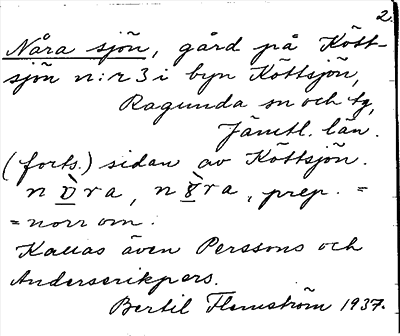 2.
Nåra sjön, gård på Kött-
sjön n:r 3 i byn Köttsjön,
Ragunda sn och tg,
Jämtl. län.
(forts.) sidan av Köttsjön.
prep. =
= norr om.
Kallas även Perssons och
Anderserikpers.
Bertil Flemström 1937.